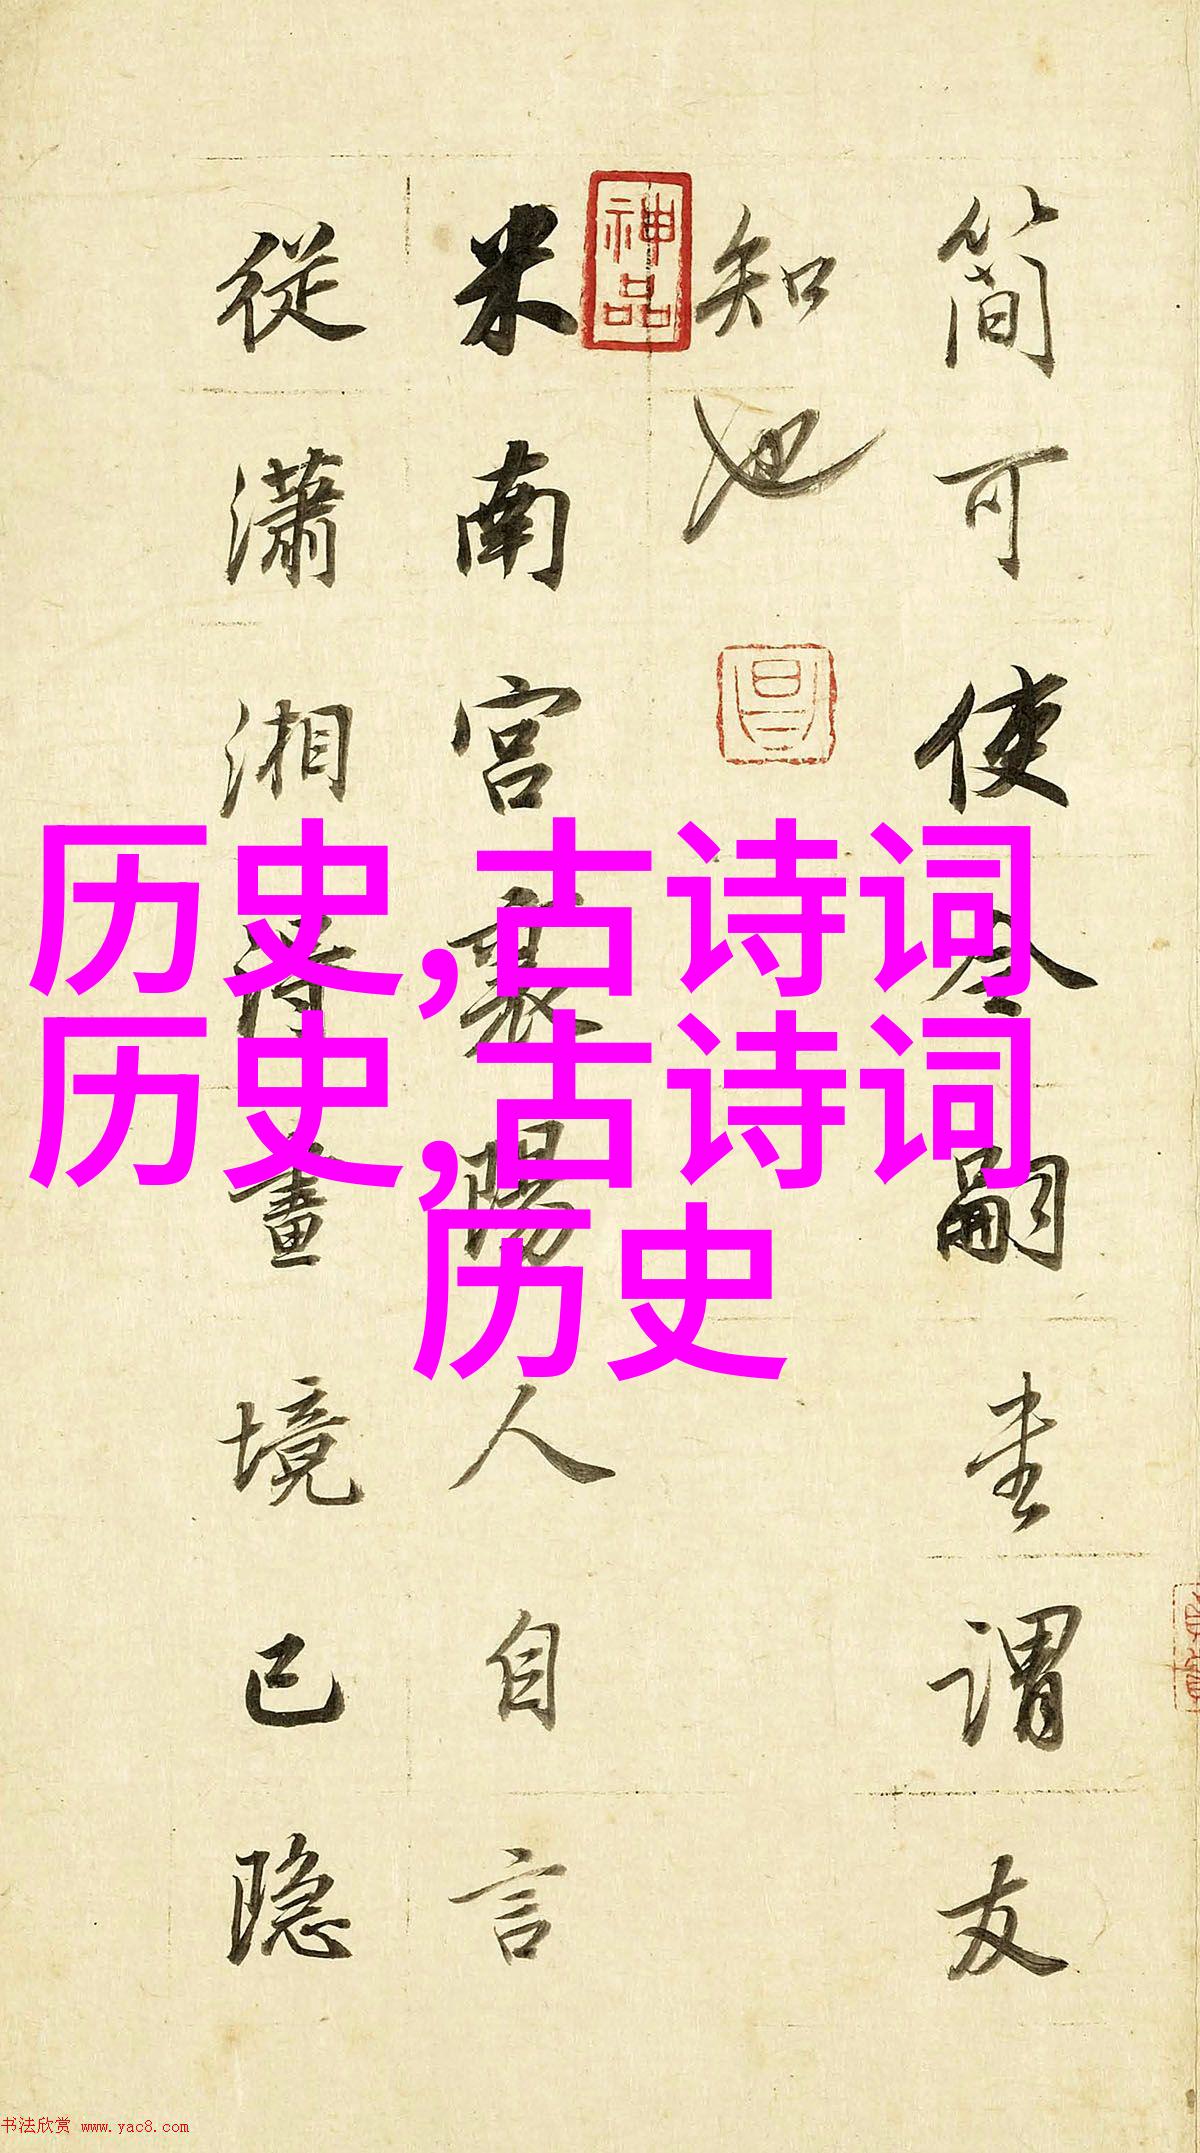 簡可使令嗣謂友
知也
昌
神品
米南宮襄陽人自言
從瀟湘得畫境已隱
历史,古诗词
历史,古诗词
历史
书法欣赏 www.yac8.com